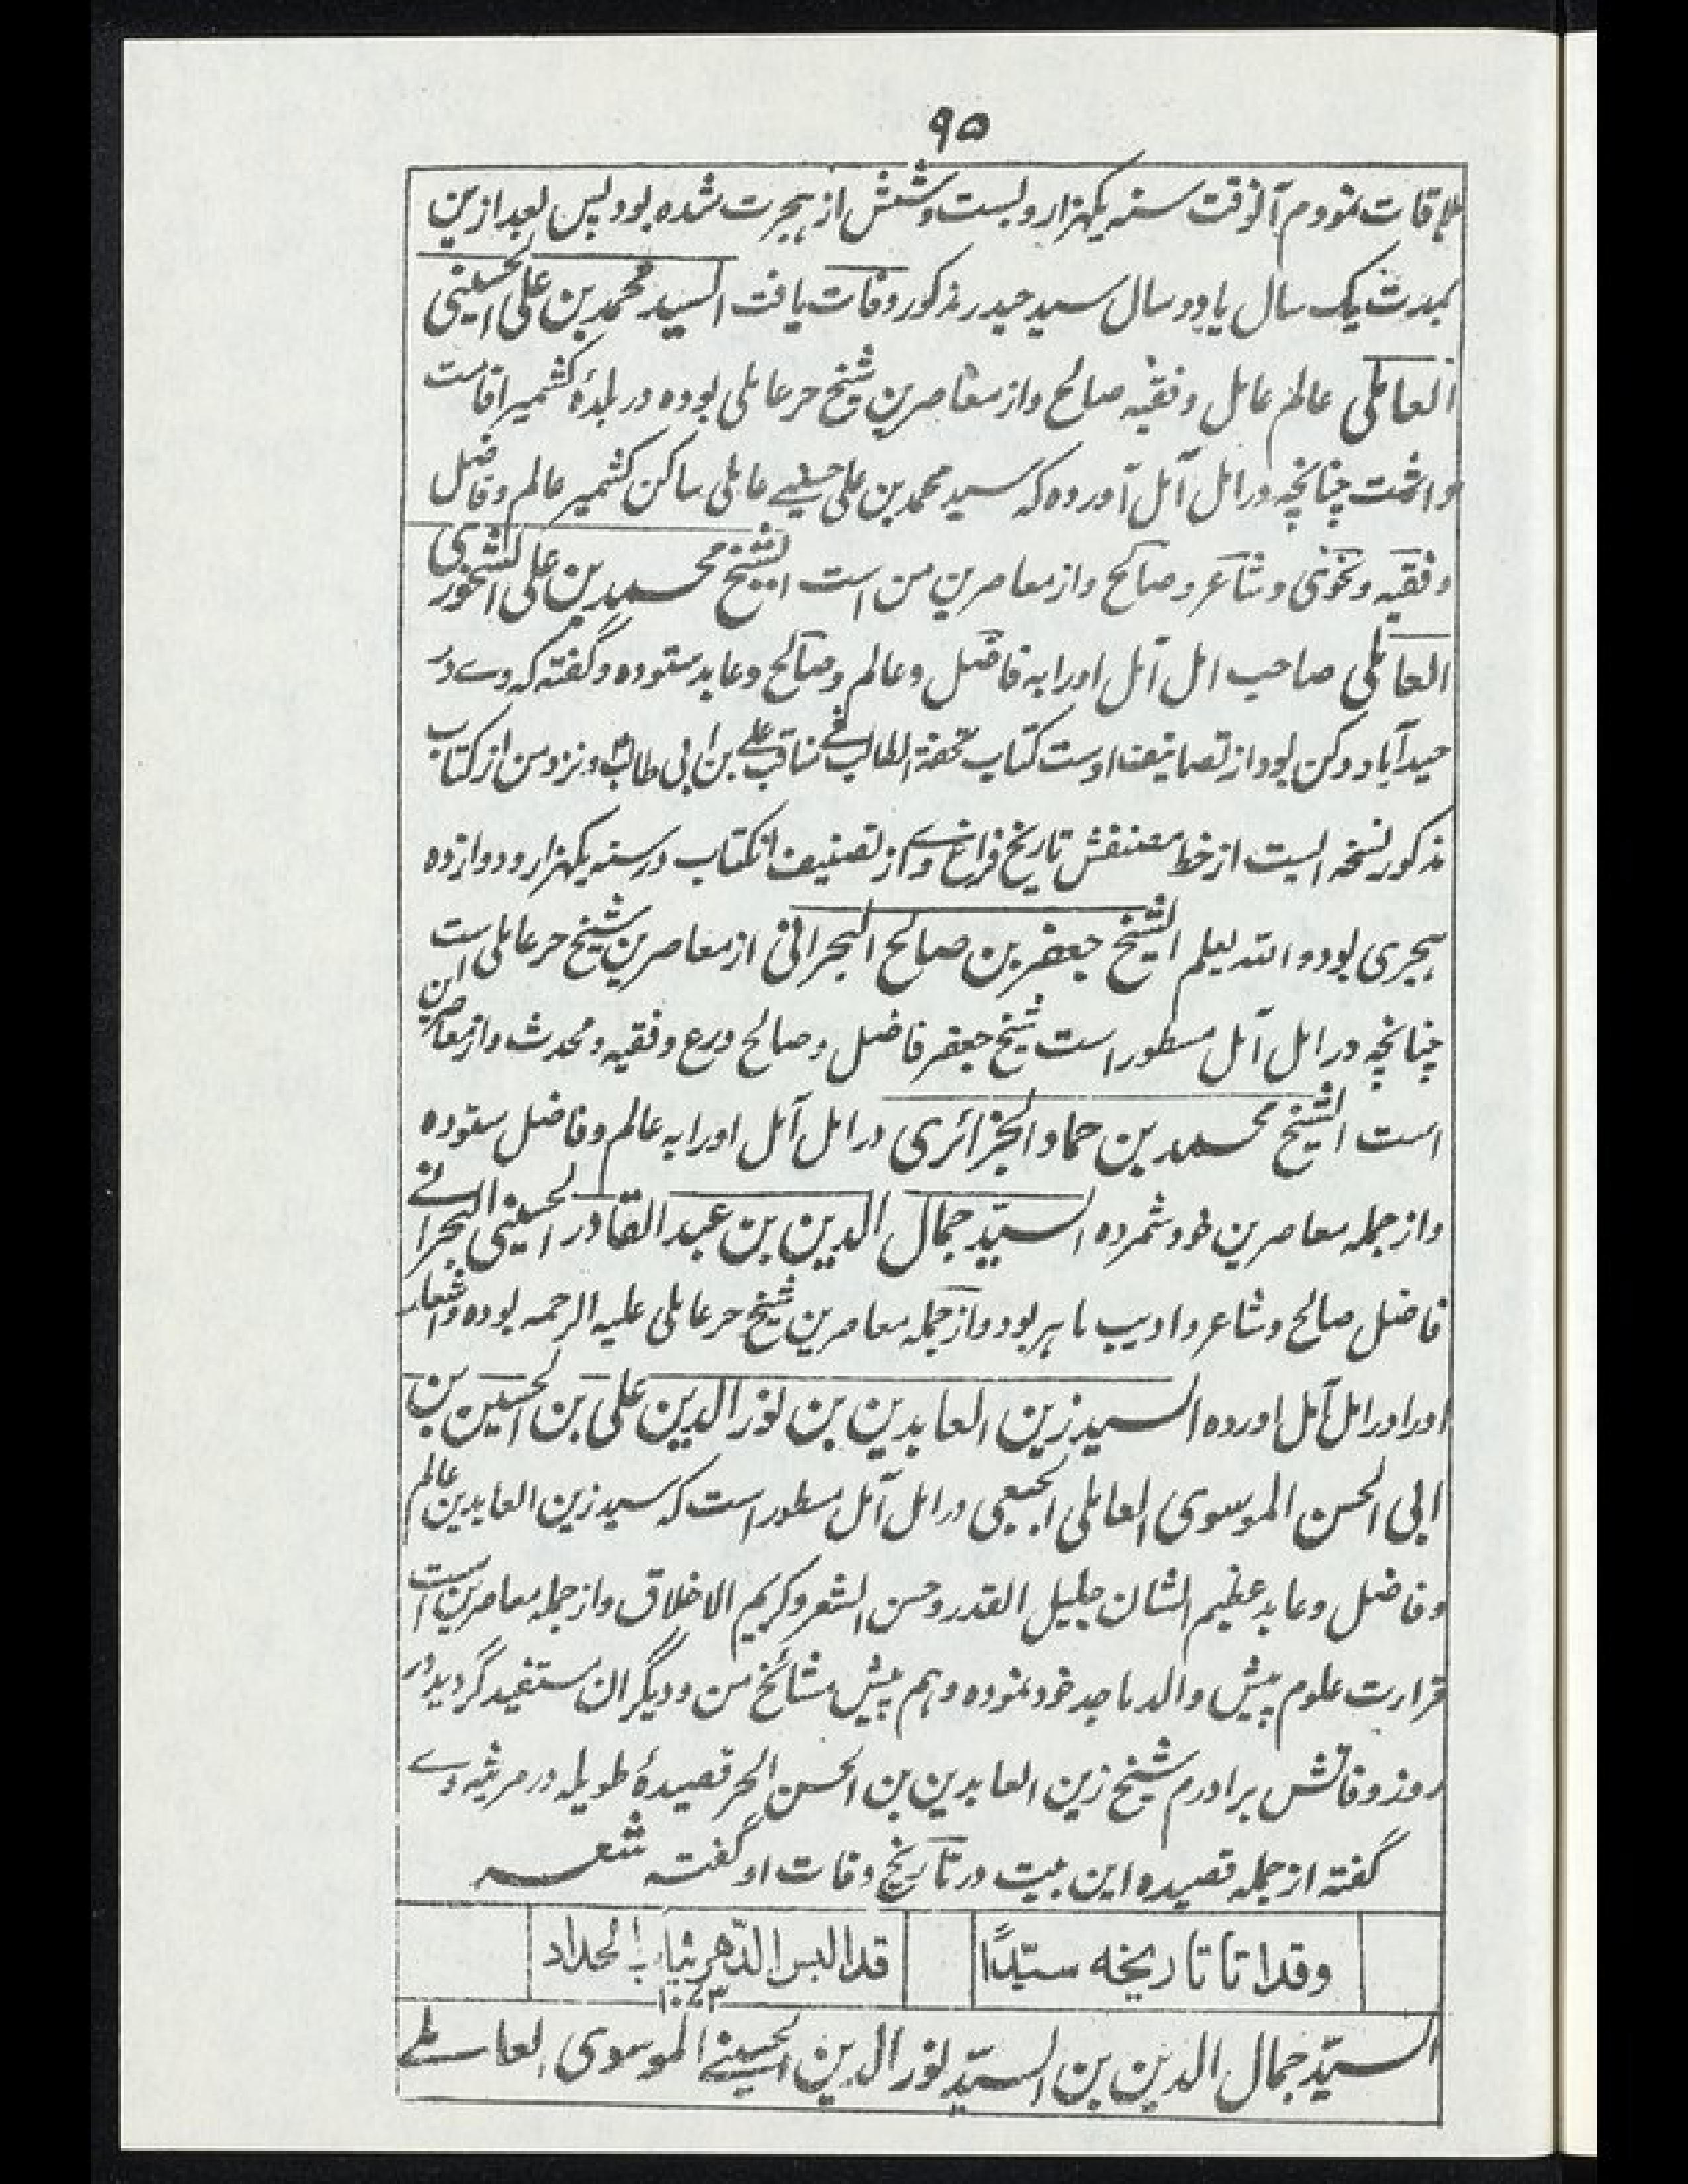 ۹۵
ملاقات نمودم آنوقت سنہ یکہزار و بست و شش از ہجرت شدہ بود پس بعد ازین
بمدت یک سال یا دو سال سید حیدر مذکور وفات یافت السید محمد بن علی الحسینی
العاملی عالم عامل و فقیہ صالح و از معاصرین شیخ حر عاملی بودہ در بلدۂ کشمیر اقامت
داشت چنانچہ در امل آمل آوردہ کہ سید محمد بن علی حسینے عاملی ساکن کشمیر عالم و فاضل
و فقیہ و نحوی و شاعر و صالح و از معاصرین من است الشیخ محمد بن علی الشحوری
العاملی صاحب امل آمل اورا بہ فاضل و عالم و صالح و عابد ستودہ و گفتہ کہ وے در
حیدآباد دکن بود از تصانیف اوست کتاب تحفۃ الطالب فے مناقب علے بن ابی طالبؑ و نزد من از کتاب
مذکور نسخہ ایست از خط مصنفش تاریخ فراغ وے از تصنیف انکتاب در سنہ یکہزار و دوازدہ
ہجری بود و اللہ یعلم الشیخ جعفر بن صالح البحرانی از معاصرین شیخ حر عاملی ست
چنانچہ در امل آمل مسطور است شیخ جعفر فاضل و صالح ورع و فقیہ و محدث و از معاصرین من
است الشیخ محمد بن حماد الجزائری در امل آمل اورا بہ عالم و فاضل ستودہ
و از جملہ معاصرین خود شمردہ السیّد جمال الدین بن عبد القادر الحسینی البحرانے
فاضل صالح و شاعر و ادیب ماہر بود و از جملہ معاصرین شیخ حر عاملی علیہ الرحمہ بودہ و اشعار
اورا در امل آمل اوردہ السید زین العابدین بن نور الدین علی بن الحسین بن
ابی الحسن الموسوی العاملی الجبعی در امل آمل مسطور است کہ سید زین العابدین عالم
و فاضل و عابد عظیم الشان جلیل القدر و حسن الشعر و کریم الاخلاق و از جملہ معاصرین است
قرارت علوم پیش والد ماجد خود نمودہ و ہم پیش مشائخ من و دیگران مستفید گردید در
روز وفاتش برادرم شیخ زین العابدین بن الحسن الحر قصیدۂ طویلہ در مرثیہ وے
گفتہ از جملہ قصیدہ این بیت در تاریخ وفات او گفتہ شعر
وقد اتا تاریخہ سیّدًا قد البس الدّھر ثیاب الحداد
۱۰۷۳
السیّد جمال الدین بن السیّد نور الدین الحسینے الموسوی العاملے